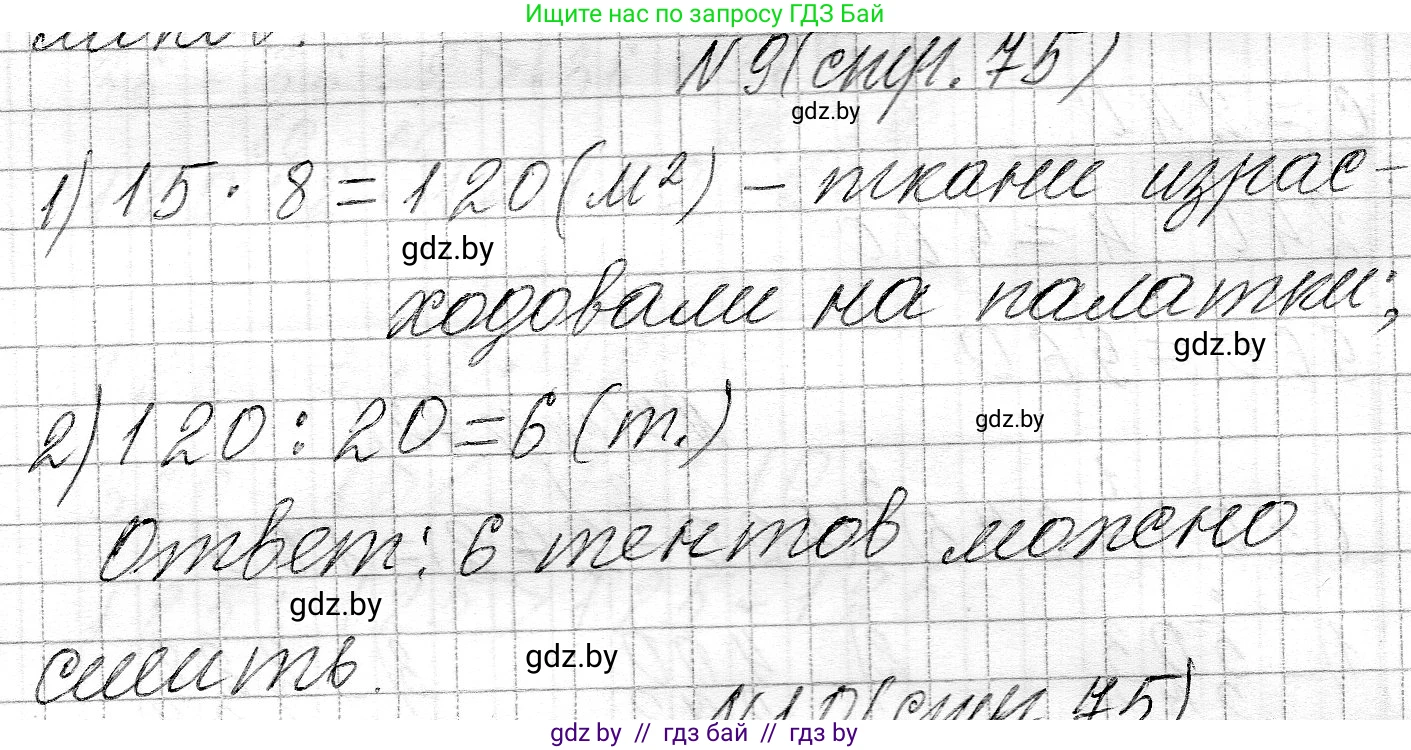 Ищите нас по запросу ГДЗ Бай
N9 (стр. 75)
gdz.by
1) 15 · 8 = 120 (м²) – ткани израс-
gdz.by
ходовали на палатки;
gdz.by
2) 120 : 20 = 6 (т.)
gdz.by
Ответ: 6 тентов можно
gdz.by
сшить.
gdz.by
N10 (стр. 75)
gdz.by // гдз бай // гдз by